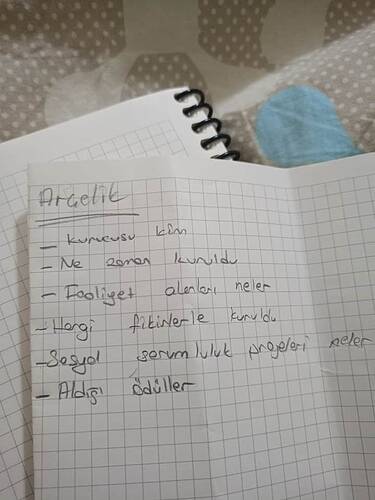 Arçelik
- Kurucusu kim
- Ne zaman kuruldu
- Faaliyet alanları neler
- Hangi fikirlerle kuruldu
- Sosyal sorumluluk projeleri neler
- Aldığı ödüller